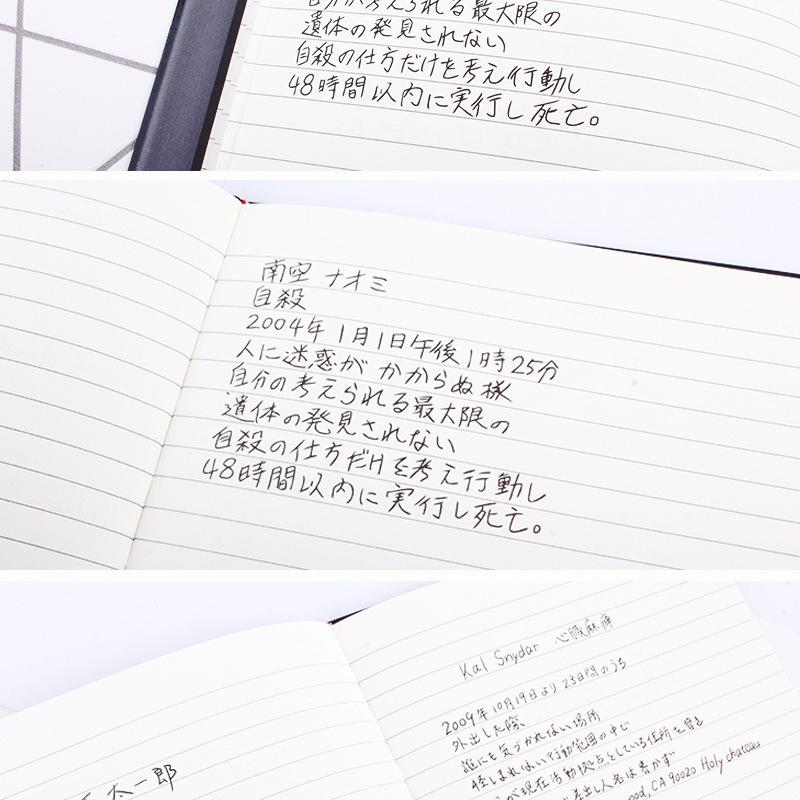 自分が考えられる最大限の
遺体の発見されない
自殺の仕方だけを考え行動し
48時間以内に実行し死亡。
南空 ナオミ
自殺
2004年1月1日午後1時25分
人に迷惑がかからぬ様
自分の考えられる最大限の
遺体の発見されない
自殺の仕方だけを考え行動し
48時間以内に実行し死亡。
太一郎
Kal Snydar 心臓麻痺
2009年10月19日より23日間のうち
外出した際、
誰にも気づかれない場所
怪しまれない行動範囲の中で
が現在活動拠点としている住所を
差出し人名は書かず
ood, CA 90020 Holy chateau